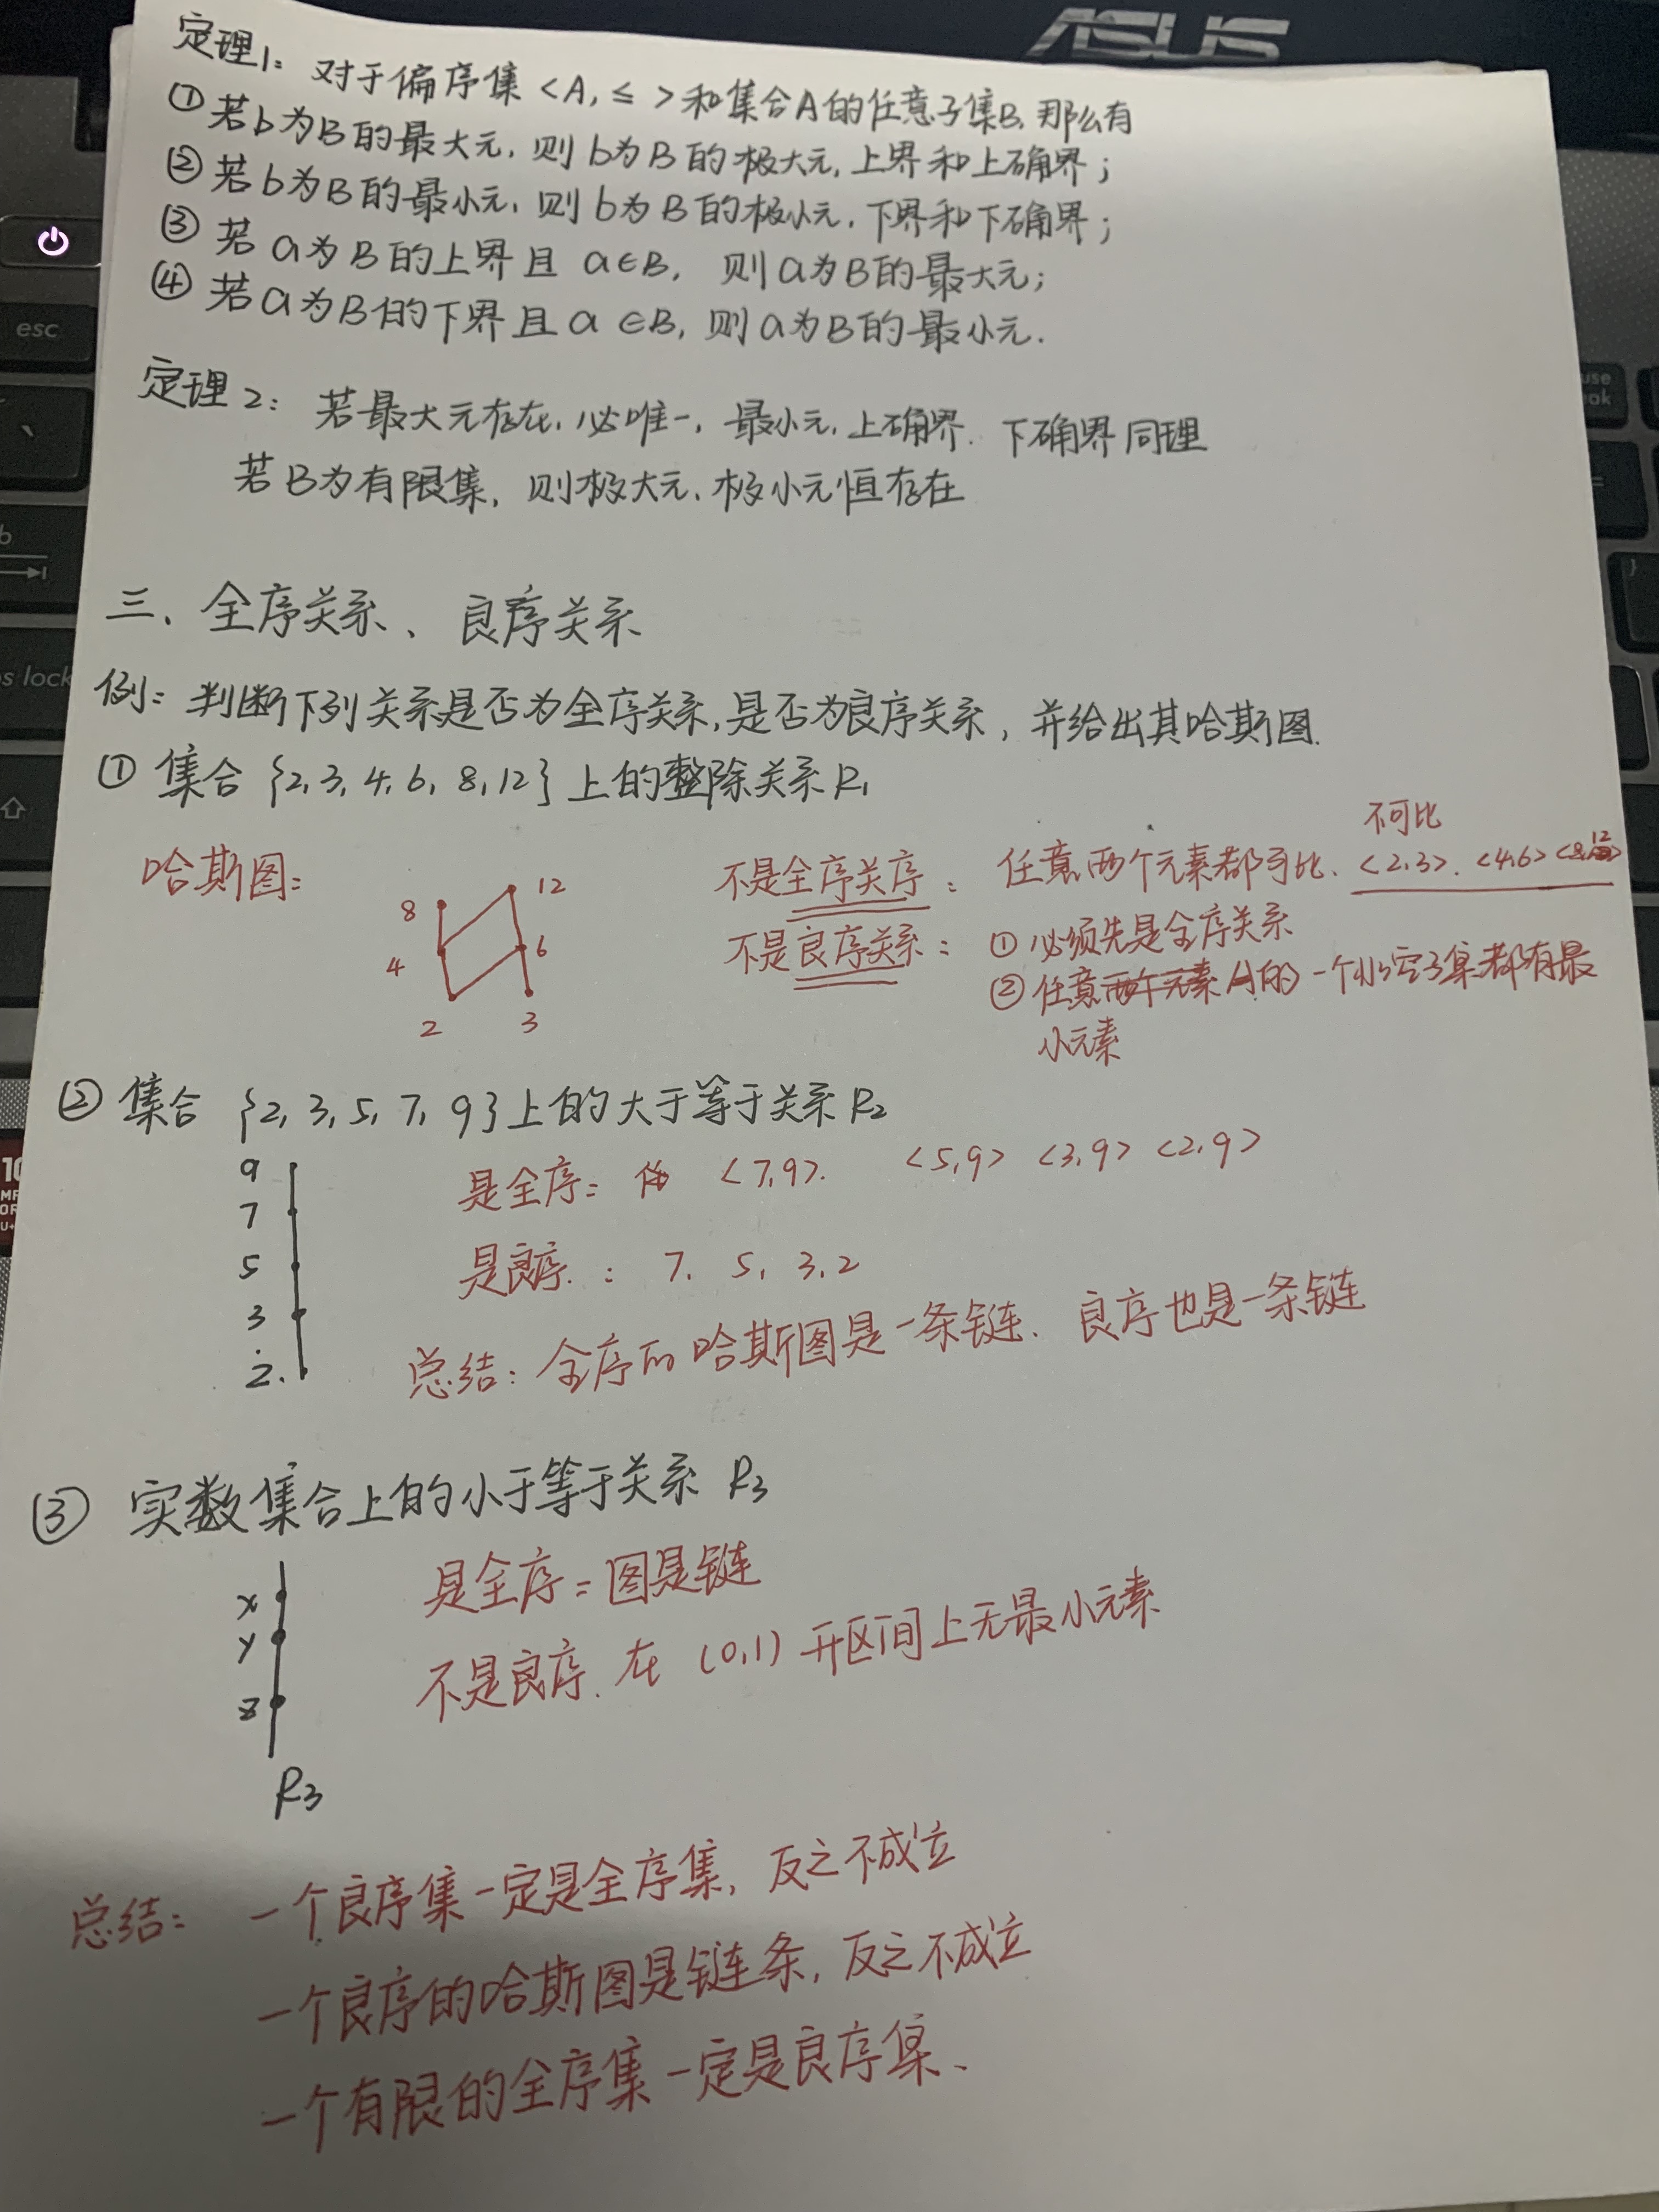 ASUS
定理1: 对于偏序集 <A, ≤> 和集合A的任意子集B, 那么有
① 若b为B的最大元, 则b为B的极大元, 上界和上确界;
② 若b为B的最小元, 则b为B的极小元, 下界和下确界;
③ 若 a为B的上界且 a∈B, 则a为B的最大元;
④ 若a为B的下界且 a∈B, 则a为B的最小元.
esc
定理2: 若最大元存在, 必唯一, 最小元, 上确界. 下确界同理
若B为有限集, 则极大元、极小元恒存在
三、全序关系、良序关系
s lock
例: 判断下列关系是否为全序关系, 是否为良序关系, 并给出其哈斯图.
① 集合 {2,3,4,6,8,12} 上的整除关系R₁
不可比
哈斯图: 不是全序关序: 任意两个元素都可比. <2,3>. <4,6> <8,12>
8 12
4 6
2 3
不是良序关系: ① 必须先是全序关系
② 任意两个元素A的一个非空子集都有最
小元素
② 集合 {2,3,5,7,9} 上的大于等于关系R₂
9
7
5
3
2.
是全序: <7,9>. <5,9> <3,9> <2,9>
是良序.: 7, 5, 3, 2
总结: 全序的哈斯图是一条链. 良序也是一条链
③ 实数集合上的小于等于关系 R₃
x
y
z
R₃
是全序: 图是链
不是良序. 在 (0,1) 开区间上无最小元素
总结: 一个良序集一定是全序集, 反之不成立
一个良序的哈斯图是链条, 反之不成立
一个有限的全序集一定是良序集、